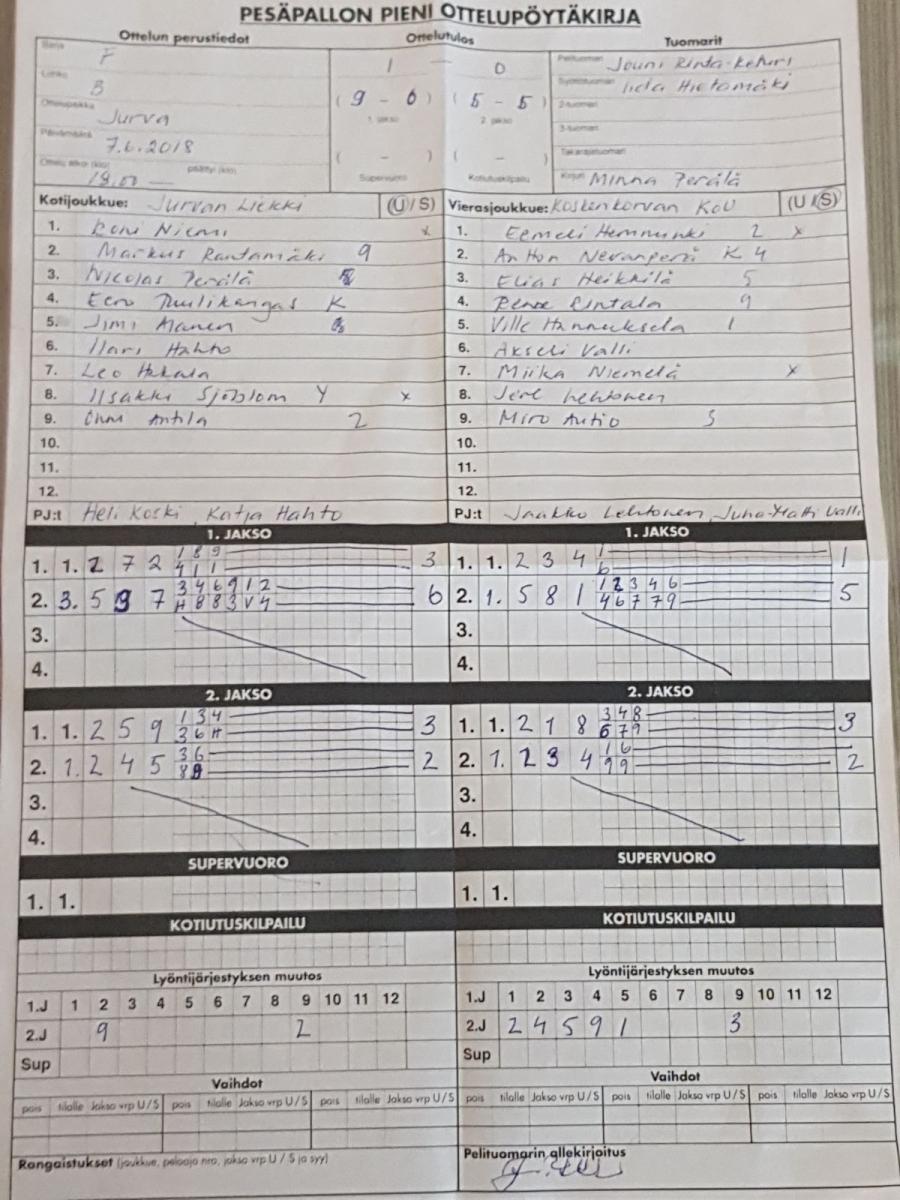 PESÄPALLON PIENI OTTELUPÖYTÄKIRJA
Ottelun perustiedot Ottelutulos Tuomarit
Sarja F 1 — 0 Pelituomari Jouni Rinta-Keturi
Lohko B Syöttötuomari Iida Hietamäki
Ottelupaikka Jurva (9 - 6) (5 - 5) 2-tuomari
1. jakso 2. jakso 3-tuomari
Päivämäärä 7.6.2018 ( - ) ( - ) Takarajatuomari
Ottelu alkoi (klo) 18.00 — päättyi (klo) Supervuoro Kotiutuskilpailu Kirjuri Minna Perälä
Kotijoukkue: Jurvan Liekki (U/S) Vierasjoukkue: Koskenkorvan KoU (U/S)
1. Roni Niemi x 1. Eemeli Hemminki 2 x
2. Markus Rantamäki 9 2. Antton Nevanperä K 4
3. Nicolas Perälä 3. Elias Heikkilä 5
4. Eero Tuulikangas K 4. Rintala 9
5. Jimi Manen 5. Ville Hannuksela 1
6. Ilari Hahto 6. Akseli Valli
7. Leo Hakala 7. Miika Niemelä x
8. Iisakki Sjöblom Y x 8. Jere Lehtonen
9. Antila 2 9. Miro Autio 3
10. 10.
11. 11.
12. 12.
PJ:t Heli Koski, Katja Hahto PJ:t Jaakko Lehtonen, Juha-Matti Valli
1. JAKSO 1. JAKSO
1. 1. 2 7 2 1 8 9 3 1. 1. 2 3 4 1 1
4 1 1 6
2. 3. 5 9 7 3 4 6 9 1 2 6 2. 1. 5 8 1 1 2 3 4 6 5
H 8 8 3 V 4 4 6 7 7 9
3. 3.
4. 4.
2. JAKSO 2. JAKSO
1. 1. 2 5 9 1 3 4 3 1. 1. 2 1 8 3 4 8 3
3 6 H 6 7 9
2. 1. 2 4 5 3 6 2 2. 1. 2 3 4 1 6 2
8 9 9 9
3. 3.
4. 4.
SUPERVUORO SUPERVUORO
1. 1. 1. 1.
KOTIUTUSKILPAILU KOTIUTUSKILPAILU
Lyöntijärjestyksen muutos Lyöntijärjestyksen muutos
1.J 1 2 3 4 5 6 7 8 9 10 11 12 1.J 1 2 3 4 5 6 7 8 9 10 11 12
2.J 9 2 2.J 2 4 5 9 1 3
Sup Sup
Vaihdot Vaihdot
pois tilalle Jakso vrp U/S pois tilalle Jakso vrp U/S pois tilalle Jakso vrp U/S pois tilalle Jakso vrp U/S pois tilalle Jakso vrp U/S pois tilalle Jakso vrp U/S
Rangaistukset (joukkue, pelaaja nro, jakso vrp U / S ja syy) Pelituomarin allekirjoitus